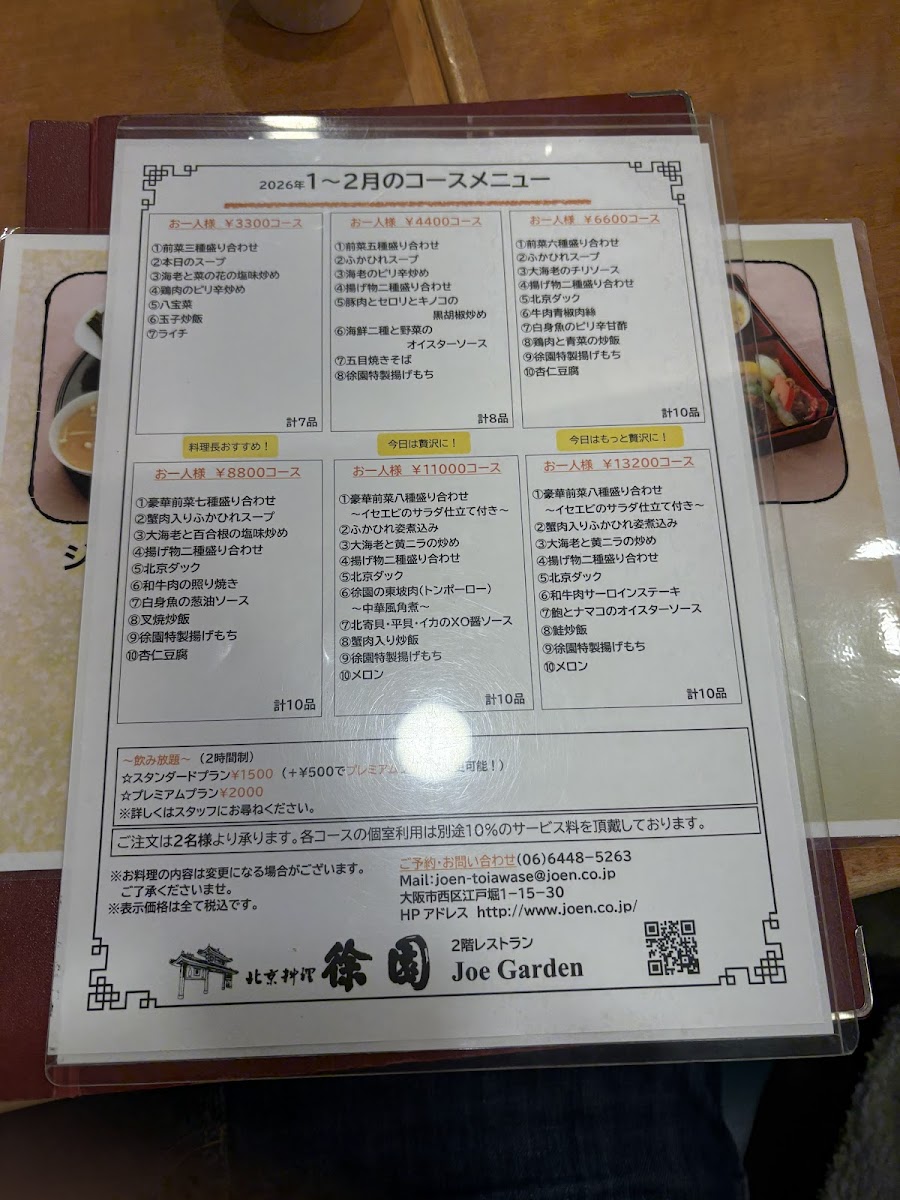 2026年1～2月のコースメニュー
お一人様 ￥3300コース
①前菜三種盛り合わせ
②本日のスープ
③海老と菜の花の塩味炒め
④鶏肉のピリ辛炒め
⑤八宝菜
⑥玉子炒飯
⑦ライチ
計7品
お一人様 ￥4400コース
①前菜五種盛り合わせ
②ふかひれスープ
③海老のピリ辛炒め
④揚げ物二種盛り合わせ
⑤豚肉とセロリとキノコの
黒胡椒炒め
⑥海鮮二種と野菜の
オイスターソース
⑦五目焼きそば
⑧徐園特製揚げもち
計8品
お一人様 ￥6600コース
①前菜六種盛り合わせ
②ふかひれスープ
③大海老のチリソース
④揚げ物二種盛り合わせ
⑤北京ダック
⑥牛肉青椒肉絲
⑦白身魚のピリ辛甘酢
⑧鶏肉と青菜の炒飯
⑨徐園特製揚げもち
⑩杏仁豆腐
計10品
料理長おすすめ！
お一人様 ￥8800コース
①豪華前菜七種盛り合わせ
②蟹肉入りふかひれスープ
③大海老と百合根の塩味炒め
④揚げ物二種盛り合わせ
⑤北京ダック
⑥和牛肉の照り焼き
⑦白身魚の葱油ソース
⑧叉焼炒飯
⑨徐園特製揚げもち
⑩杏仁豆腐
計10品
今日は贅沢に！
お一人様 ￥11000コース
①豪華前菜八種盛り合わせ
～イセエビのサラダ仕立て付き～
②ふかひれ姿煮込み
③大海老と黄ニラの炒め
④揚げ物二種盛り合わせ
⑤北京ダック
⑥徐園の東坡肉(トンポーロー)
～中華風角煮～
⑦北寄貝・平貝・イカのXO醤ソース
⑧蟹肉入り炒飯
⑨徐園特製揚げもち
⑩メロン
計10品
今日はもっと贅沢に！
お一人様 ￥13200コース
①豪華前菜八種盛り合わせ
～イセエビのサラダ仕立て付き～
②蟹肉入りふかひれ姿煮込み
③大海老と黄ニラの炒め
④揚げ物二種盛り合わせ
⑤北京ダック
⑥和牛肉サーロインステーキ
⑦鮑とナマコのオイスターソース
⑧鮭炒飯
⑨徐園特製揚げもち
⑩メロン
計10品
～飲み放題～（2時間制）
☆スタンダードプラン¥1500（＋¥500でプレミアム 可能！）
☆プレミアムプラン¥2000
※詳しくはスタッフにお尋ねください。
ご注文は2名様より承ります。各コースの個室利用は別途10%のサービス料を頂戴しております。
※お料理の内容は変更になる場合がございます。
ご了承くださいませ。
※表示価格は全て税込です。
ご予約・お問い合わせ(06)6448-5263
Mail:joen-toiawase@joen.co.jp
大阪市西区江戸堀1-15-30
HP アドレス http://www.joen.co.jp/
北京料理 徐園
2階レストラン
Joe Garden